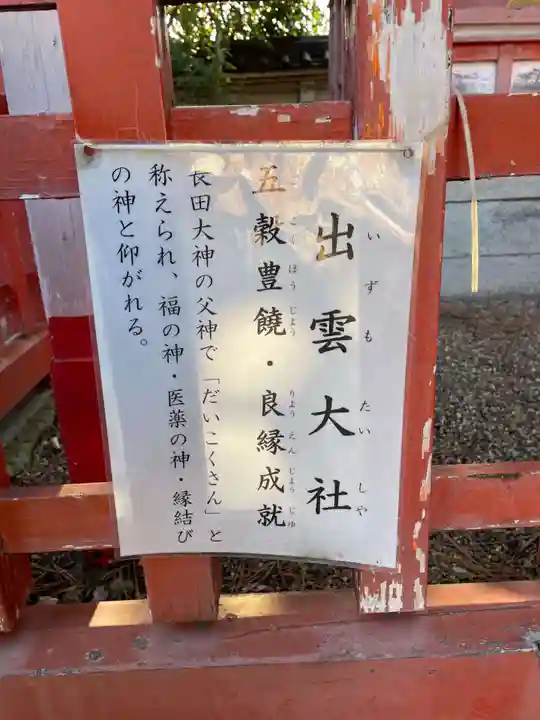 出雲大社
いずもたいしゃ
五穀豊饒・良縁成就
こくほうじょう りょうえんじょうじゅ
長田大神の父神で「だいこくさん」と
称えられ、福の神・医薬の神・縁結び
の神と仰がれる。